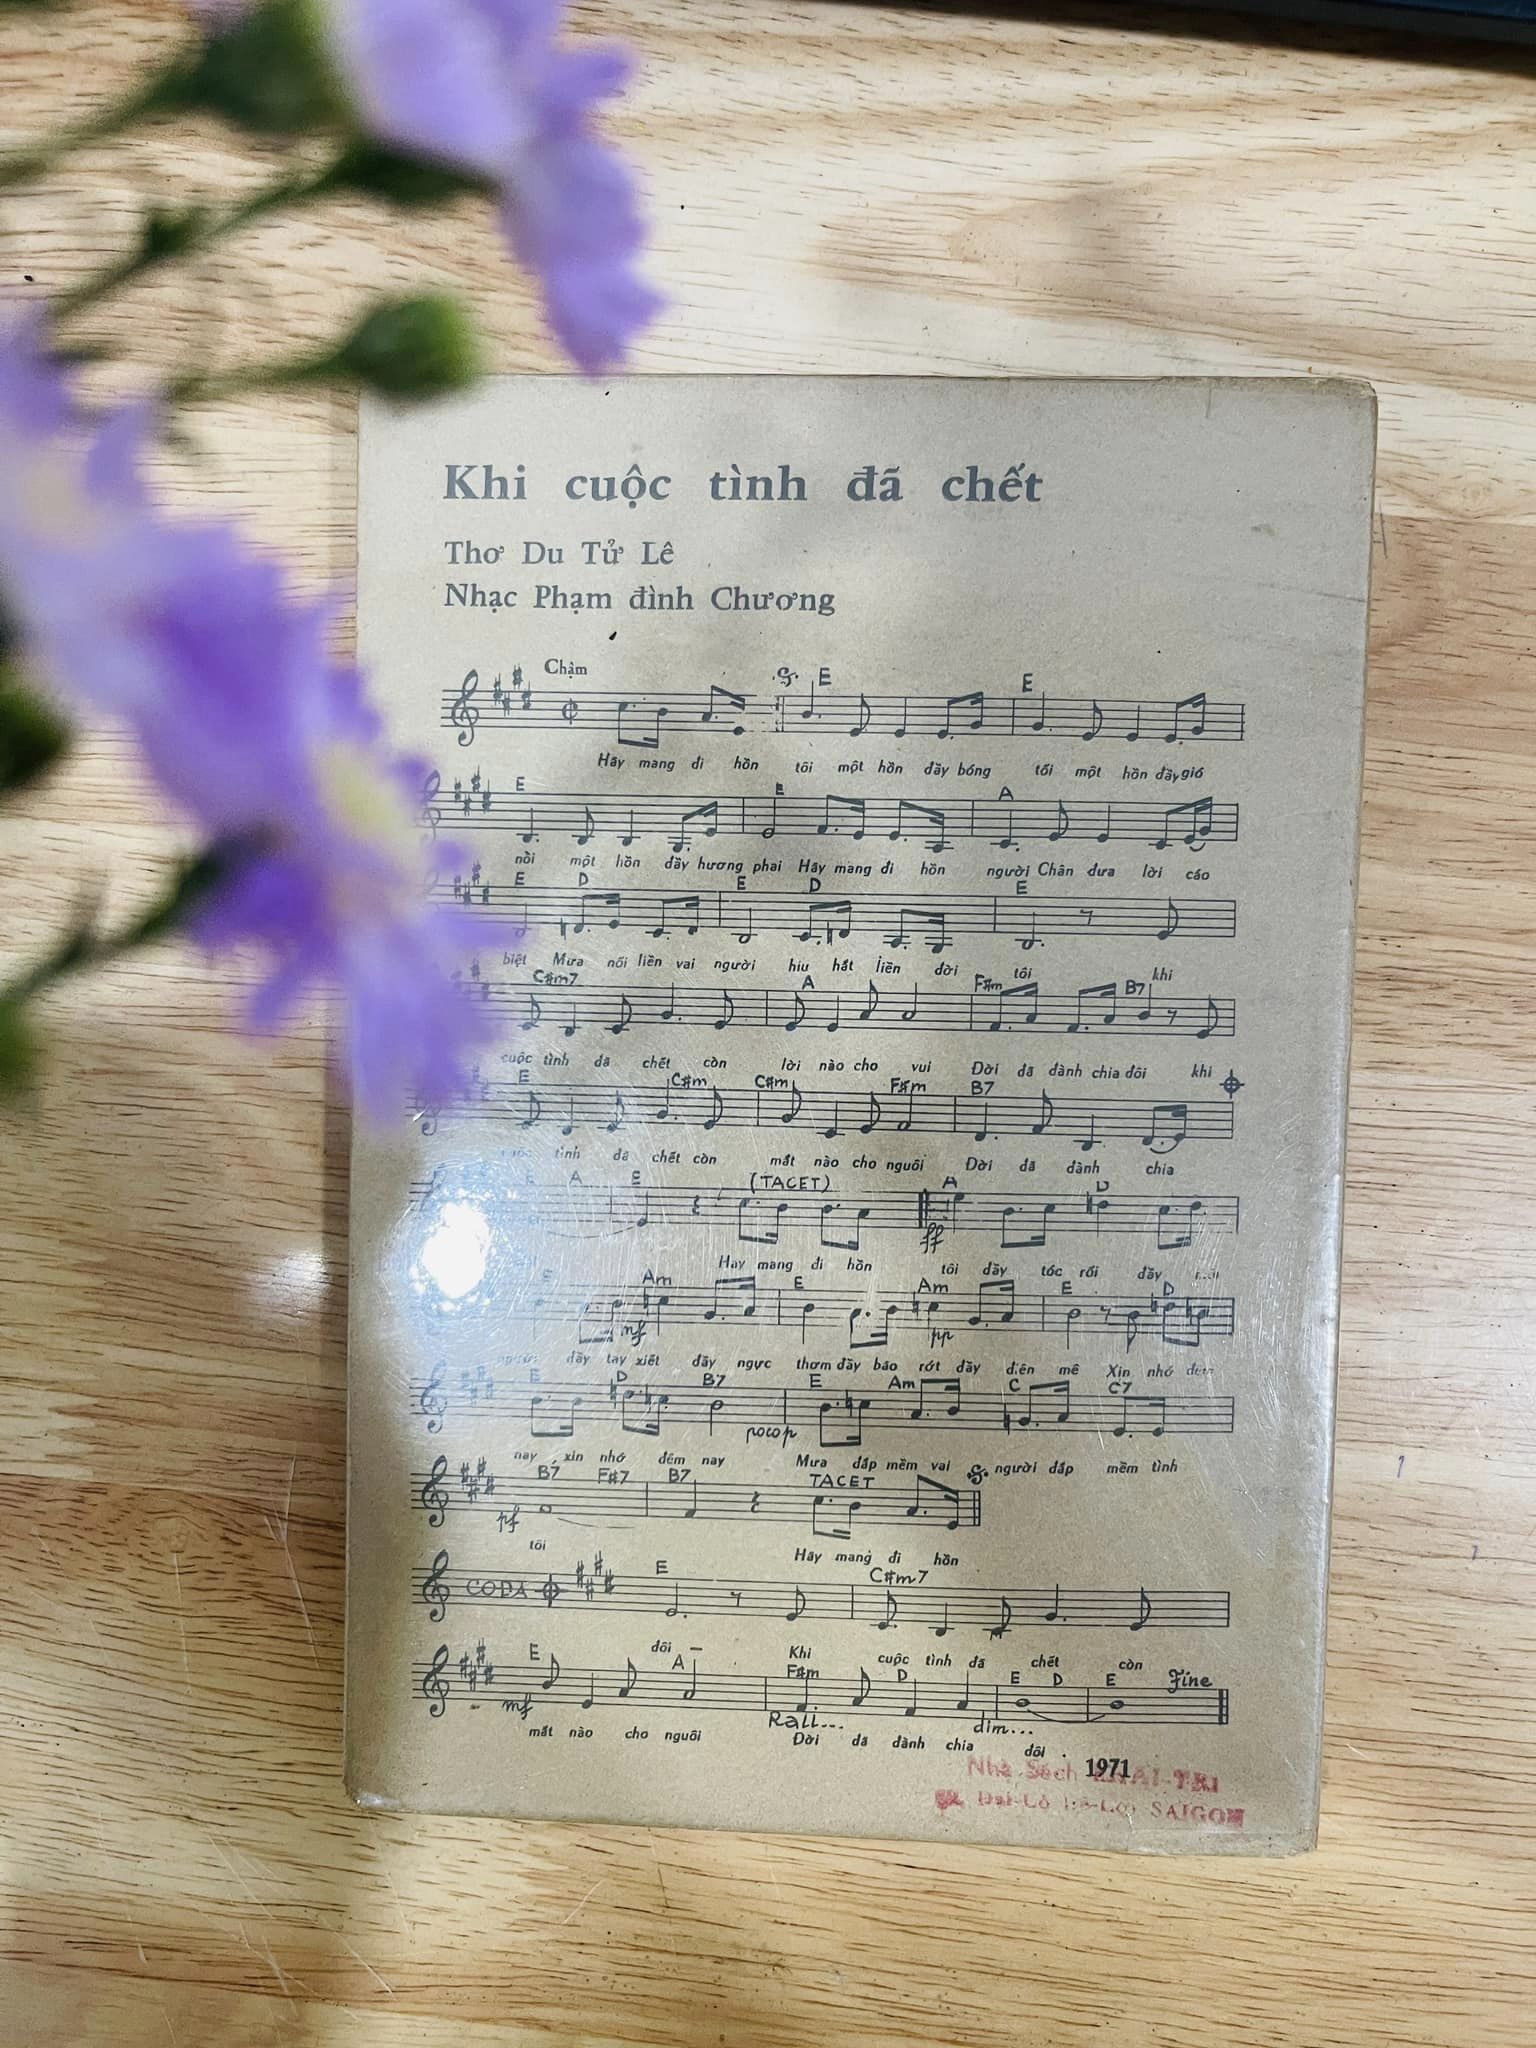 Khi cuộc tình đã chết
Thơ Du Tử Lê
Nhạc Phạm đình Chương
Chậm
E E
Hãy mang đi hồn tôi một hồn đầy bóng tối một hồn đầy gió
E E A
nồi một hồn đầy hương phai Hãy mang đi hồn người Chân đưa lời cáo
E D E D E
biệt Mưa nối liền vai người hiu hắt liền đời tôi khi
C#m7 A F#m B7
cuộc tình đã chết còn lời nào cho vui Đời đã dành chia đôi khi
E C#m C#m F#m B7
tình đã chết còn mắt nào cho nguôi Đời đã dành chia
E A E (TACET) A D
ff
Hãy mang đi hồn tôi đầy tóc rối đầy môi
E Am E Am E D
mf pp
người đầy tay xiết đầy ngực thơm đầy bão rớt đầy điên mê Xin nhớ đêm
E D B7 E Am C C7
poco p
nay xin nhớ đêm nay Mưa dắp mềm vai người dắp mềm tình
B7 F#7 B7 TACET
pf
tôi Hãy mang đi hồn
CODA E C#m7
đôi — Khi cuộc tình đã chết còn
E A F#m D E D E Fine
mf Rall... dim...
mắt nào cho nguôi Đời đã dành chia đôi
1971
Nhà Sách KHAI-TRI
Đại-Lộ Lê-Lợi SAIGON